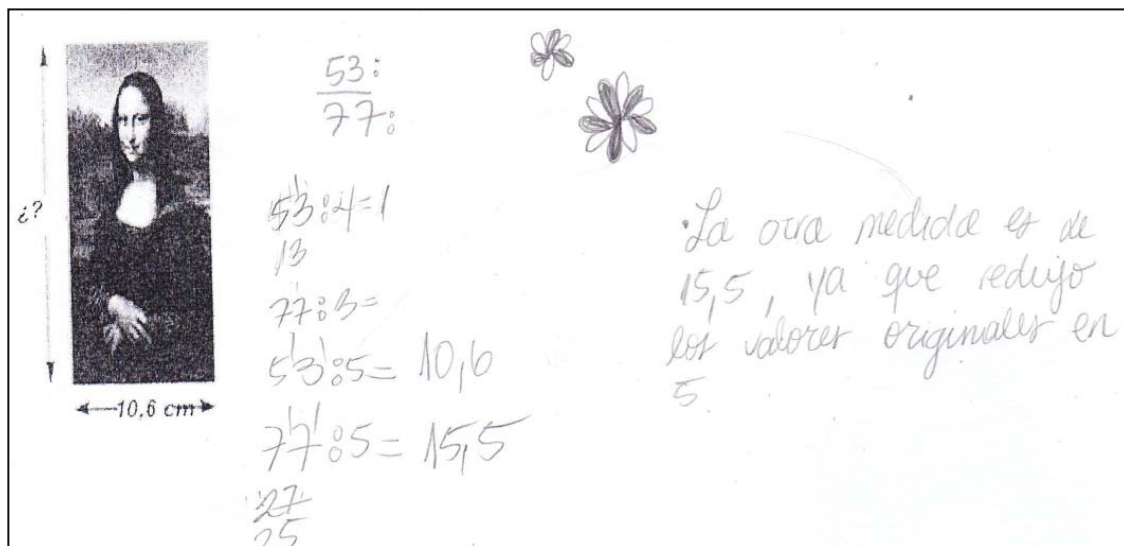 ¿?
10,6 cm
53:
77:
53:4=1
13
77:3=
53:5= 10,6
77:5= 15,5
27
25
·La otra medida es de
15,5, ya que redujo
los valores originales en
5